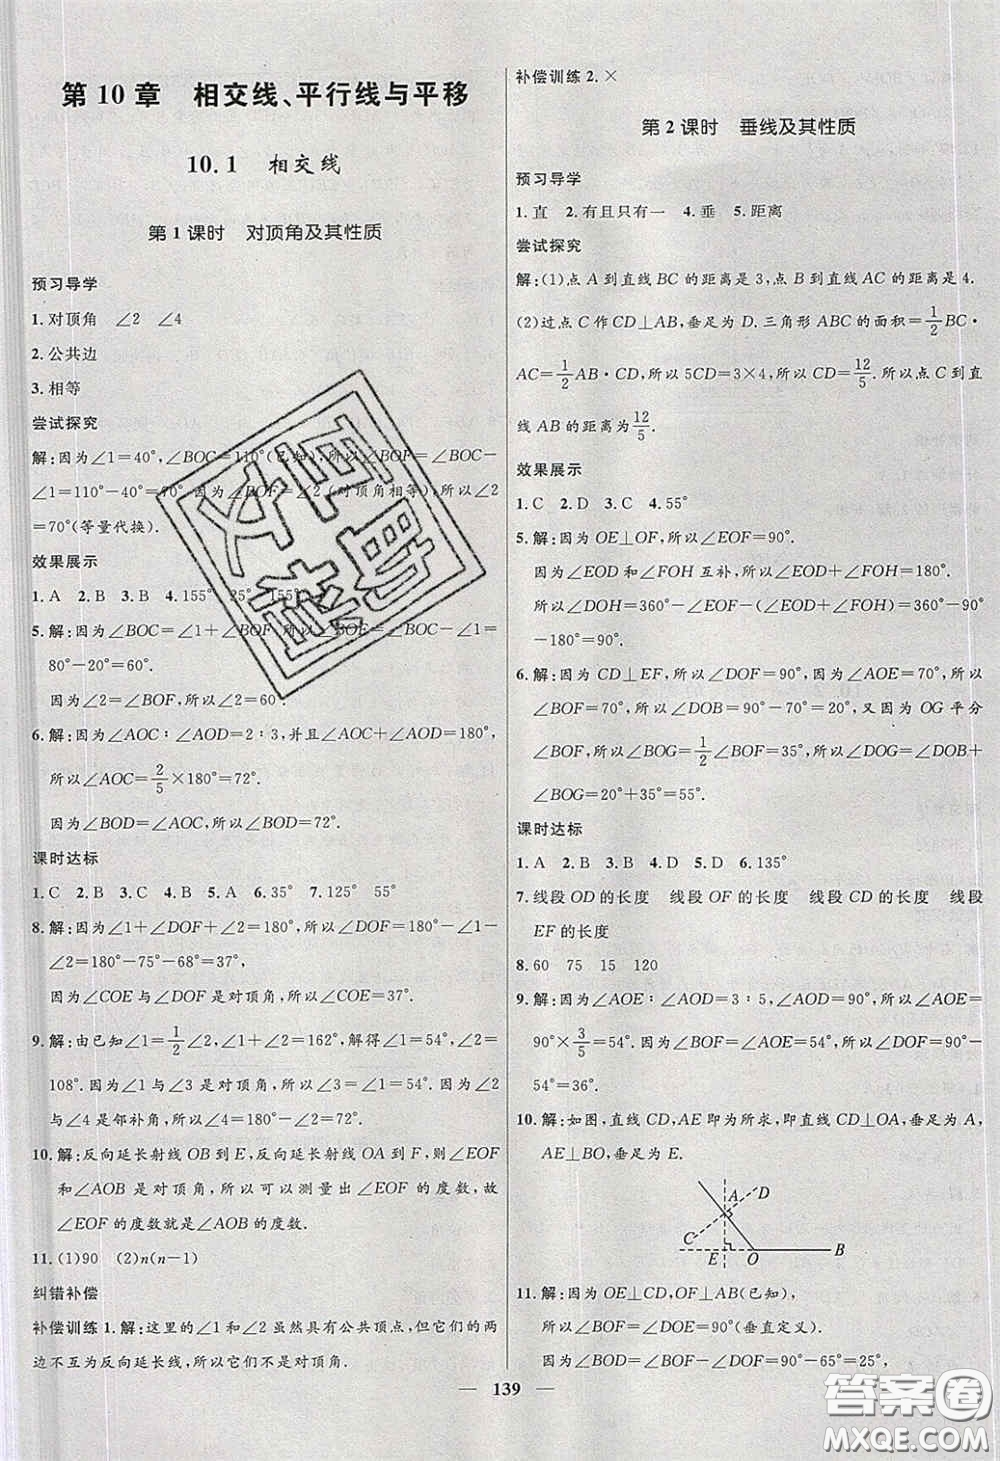 第 10 章　相交线、平行线与平移
10.1　相交线
第 1 课时　对顶角及其性质
预习导学
1. 对顶角　∠2　∠4
2. 公共边
3. 相等
尝试探究
解:因为∠1=40°,∠BOC=110°(已知),所以∠BOF=∠BOC-
∠1=110°-40°=70°.因为∠BOF=∠2(对顶角相等),所以∠2
=70°(等量代换).
效果展示
1. A　2. B　3. B　4. 155°　25°　155°
5. 解:因为∠BOC=∠1+∠BOF,所以∠BOF=∠BOC-∠1=
80°-20°=60°.
因为∠2=∠BOF,所以∠2=60°.
6. 解:因为∠AOC∶∠AOD=2∶3,并且∠AOC+∠AOD=180°,
所以∠AOC=2/5×180°=72°.
因为∠BOD=∠AOC,所以∠BOD=72°.
课时达标
1. C　2. B　3. C　4. B　5. A　6. 35°　7. 125°　55°
8. 解:因为∠1+∠DOF+∠2=180°,所以∠DOF=180°-∠1-
∠2=180°-75°-68°=37°.
因为∠COE与∠DOF是对顶角,所以∠COE=37°.
9. 解:由已知∠1=1/2∠2,∠1+∠2=162°,解得∠1=54°,∠2=
108°.因为∠1与∠3是对顶角,所以∠3=∠1=54°.因为∠2
与∠4是邻补角,所以∠4=180°-∠2=72°.
10. 解:反向延长射线OB到E,反向延长射线OA到F,则∠EOF
和∠AOB是对顶角,所以可以测量出∠EOF的度数,故
∠EOF的度数就是∠AOB的度数.
11. (1)90　(2)n(n-1)
纠错补偿
补偿训练 1. 解:这里的∠1和∠2虽然具有公共顶点,但它们的两
边不互为反向延长线,所以它们不是对顶角.
补偿训练 2. ×
第 2 课时　垂线及其性质
预习导学
1. 直　2. 有且只有一　4. 垂　5. 距离
尝试探究
解:(1)点A到直线BC的距离是3,点B到直线AC的距离是4.
(2)过点C作CD⊥AB,垂足为D.三角形ABC的面积=1/2BC·
AC=1/2AB·CD,所以5CD=3×4,所以CD=12/5.所以点C到直
线AB的距离为12/5.
效果展示
1. C　2. D　3. C　4. 55°
5. 解:因为OE⊥OF,所以∠EOF=90°.
因为∠EOD和∠FOH互补,所以∠EOD+∠FOH=180°.
所以∠DOH=360°-∠EOF-(∠EOD+∠FOH)=360°-90°
-180°=90°.
6. 解:因为CD⊥EF,所以∠DOF=90°,因为∠AOE=70°,所以
∠BOF=70°,所以∠DOB=90°-70°=20°,又因为OG平分
∠BOF,所以∠BOG=1/2∠BOF=35°,所以∠DOG=∠DOB+
∠BOG=20°+35°=55°.
课时达标
1. A　2. B　3. B　4. B　5. D　6. 135°
7. 线段OD的长度　线段OF的长度　线段CD的长度　线段
EF的长度
8. 60　75　15　120
9. 解:因为∠AOE∶∠AOD=3∶5,∠AOD=90°,所以∠AOE=
90°×3/5=54°.因为∠BOF=∠AOE=54°,所以∠DOF=90°-
54°=36°.
10. 解:如图,直线CD,AE即为所求,即直线CD⊥OA,垂足为A,
AE⊥BO,垂足为E.
A D
C
E O B
11. 解:因为OE⊥CD,OF⊥AB(已知),
所以∠DOE=∠BOF=90°(垂直定义).
所以∠BOD=∠BOF-∠DOF=90°-65°=25°,
139
答案卷
MXQE.COM